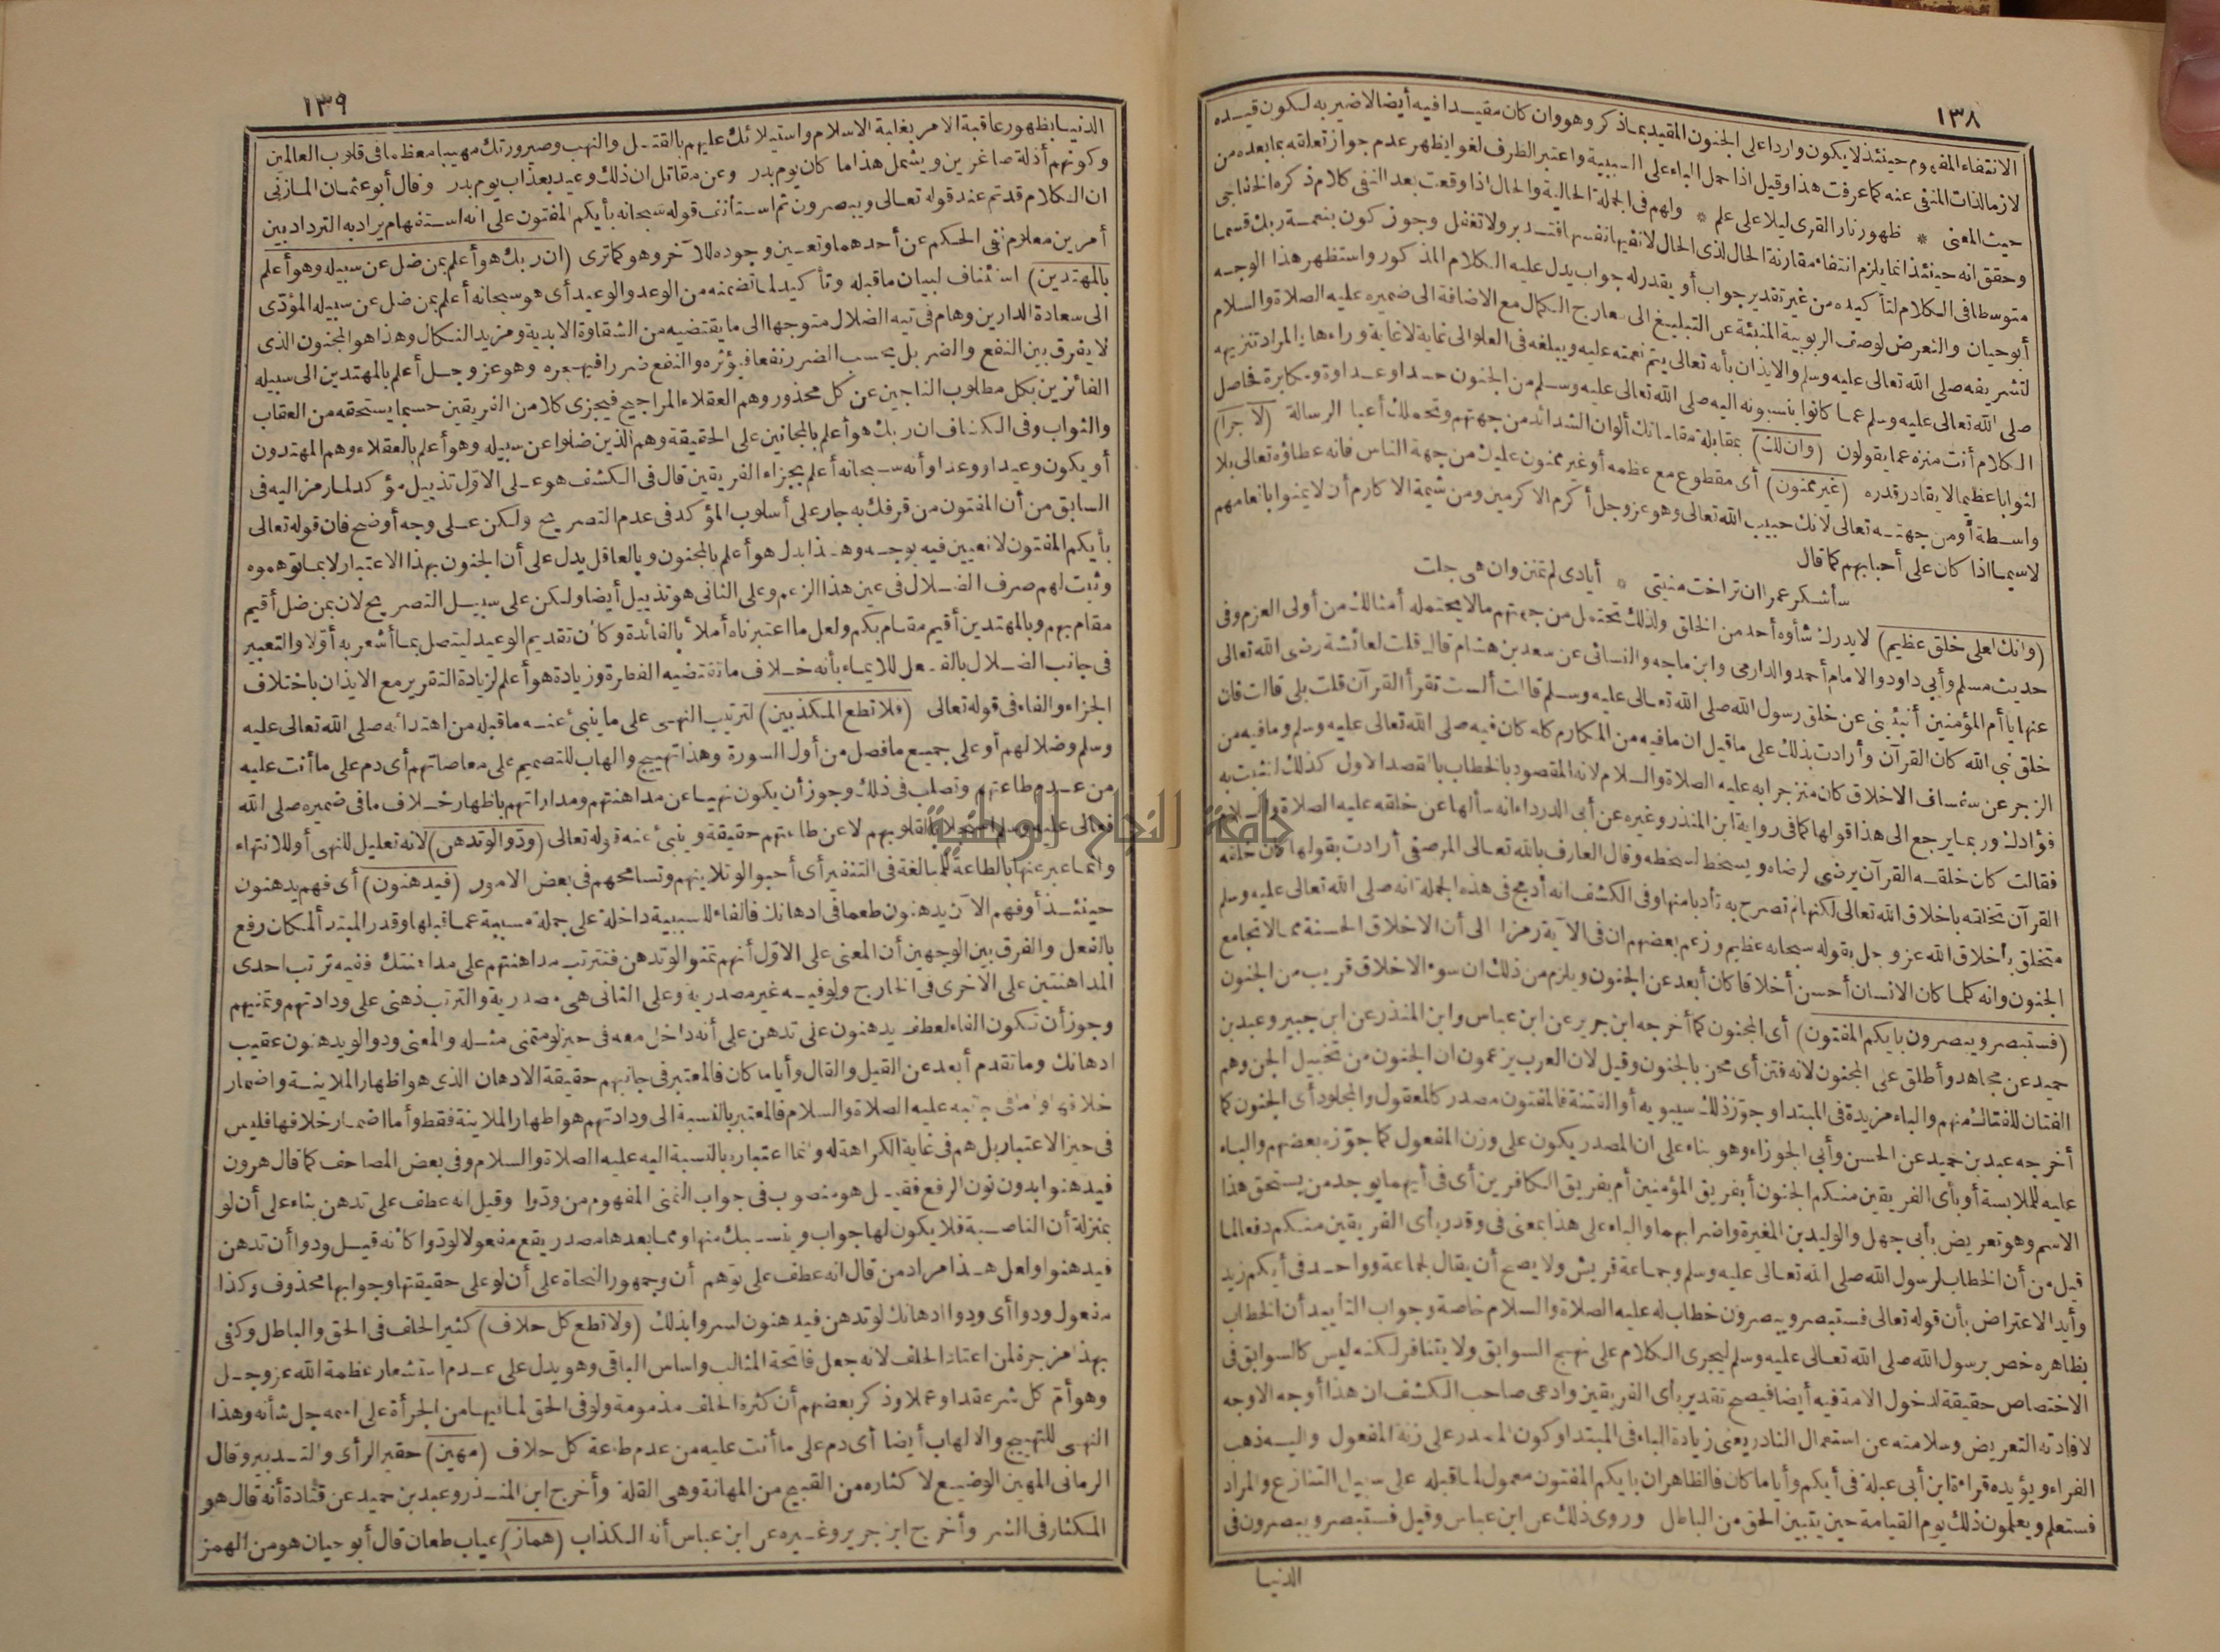 ١٣٨
الانتفاء المفهوم حينئذ لا يكون واردا على الجنون المقيد بما ذكر وهو وان كان مقيدا فيه أيضا لا ضير به لكون قيده
لازما لذات المنفى عنه كما عرفت هذا وقيل اذا حمل الباء على السببية واعتبر الظرف لغوا يظهر عدم جواز تعلقه بما بعده من
حيث المعنى * ظهور نار القرى ليلا على علم * ولهم فى الجملة الحالية والحال اذا وقعت بعد النفى كلام ذكره الخفاجى
وحقق انه حينئذ انما يلزم انتفاء مقارنة الحال لذى الحال لا نفيها نفسها فتدبر ولا تغفل وجوز كون بنعمة ربك قسما
متوسطا فى الكلام لتأكيده من غير تقدير جواب أو يقدر له جواب يدل عليه الكلام المذكور واستظهر هذا الوجه
أبو حيان والتعرض لوصف الربوبية المنبئة عن التبليغ الى معارج الكمال مع الاضافة الى ضميره عليه الصلاة والسلام
لتشريفه صلى الله تعالى عليه وسلم والايذان بأنه تعالى يتم نعمته عليه ويبلغه فى العلو الى غاية لا غاية وراءها والمراد تنزيهه
صلى الله تعالى عليه وسلم عما كانوا ينسبونه اليه صلى الله تعالى عليه وسلم من الجنون حسدا وعداوة ومكابرة فحاصل
الكلام أنت منزه عما يقولون (وان لك) بمقابلة مقاساتك ألوان الشدائد من جهتهم وتحملك أعباء الرسالة (لأجرا)
لثوابا عظيما لا يقادر قدره (غير ممنون) أى مقطوع مع عظمه أو غير ممنون عليك من جهة الناس فانه عطاؤه تعالى بلا
واسطة أو من جهته تعالى لانك حبيب الله تعالى وهو عز وجل أكرم الاكرمين ومن شيمة الاكارم أن لا يمنوا بانعامهم
لا سيما اذا كان على أحبابهم كما قال
سأشكر عمرا ان تراخت منيتى * أيادى لم تمنن وان هى جلت
(وانك لعلى خلق عظيم) لا يدرك شأوه أحد من الخلق ولذلك تحتمل من جهتهم ما لا يحتمله أمثالك من أولى العزم وفى
حديث مسلم وأبى داود والامام أحمد والدارمى وابن ماجه والنسائى عن سعد بن هشام قال قلت لعائشة رضى الله تعالى
عنها يا أم المؤمنين أنبئينى عن خلق رسول الله صلى الله تعالى عليه وسلم قالت ألست تقرأ القرآن قلت بلى قالت فان
خلق نبى الله كان القرآن وأرادت بذلك على ما قيل ان ما فيه من المكارم كله كان فيه صلى الله تعالى عليه وسلم وما فيه من
الزجر عن سفساف الاخلاق كان منزجرا به عليه الصلاة والسلام لانه المقصود بالخطاب بالقصد الاول كذلك لنثبت به
فؤادك وربما يرجع الى هذا قولها كما فى رواية ابن المنذر وغيره عن أبى الدرداء انه سألها عن خلقه عليه الصلاة والسلام
فقالت كان خلقه القرآن يرضى لرضاه ويسخط لسخطه وقال العارف بالله تعالى المرصفى أرادت بقولها كان خلقه
القرآن تخلقه باخلاق الله تعالى لكنها لم تصرح به تأدبا منها وفى الكشف انه أدمج فى هذه الجملة انه صلى الله تعالى عليه وسلم
متخلق بأخلاق الله عز وجل بقوله سبحانه عظيم وزعم بعضهم ان فى الآية رمزا الى أن الاخلاق الحسنة مما لا تجامع
الجنون وانه كلما كان الانسان أحسن أخلاقا كان أبعد عن الجنون ويلزم من ذلك ان سوء الاخلاق قريب من الجنون
(فستبصر ويبصرون بايكم المفتون) أى المجنون كما أخرجه ابن جرير عن ابن عباس وابن المنذر عن ابن جبير وعبد بن
حميد عن مجاهد وأطلق على المجنون لانه فتن أى محن بالجنون وقيل لان العرب يزعمون ان الجنون من تخبيل الجن وهم
الفتان للفتاك منهم والباء مزيدة فى المبتدا وجوّز ذلك سيبويه أو الفتنة فالمفتون مصدر كالمعقول والمجلود أى الجنون كما
أخرجه عبد بن حميد عن الحسن وأبى الجوزاء وهو بناء على ان المصدر يكون على وزن المفعول كما جوّزه بعضهم والباء
عليه للملابسة أو بأى الفريقين منكم الجنون أبفريق المؤمنين أم بفريق الكافرين أى فى أيهما يوجد من يستحق هذا
الاسم وهو تعريض بأبى جهل والوليد بن المغيرة واضرابهما والباء على هذا بمعنى فى وقدر بأى الفريقين منكم دفعا لما
قيل من أن الخطاب لرسول الله صلى الله تعالى عليه وسلم وجماعة قريش ولا يصح أن يقال لجماعة وواحد فى أيكم زيد
وأيد الاعتراض بأن قوله تعالى فستبصر ويبصرون خطاب له عليه الصلاة والسلام خاصة وجواب التأييد أن الخطاب
بظاهره خص برسول الله صلى الله تعالى عليه وسلم ليجرى الكلام على نهج السوابق ولا يتنافر لكنه ليس كالسوابق فى
الاختصاص حقيقة لدخول الامة فيه أيضا فيصح تقدير بأى الفريقين وادعى صاحب الكشف ان هذا أوجه الاوجه
لافادته التعريض وسلامته عن استعمال النادر يعنى زيادة الباء فى المبتدا وكون المصدر على زنة المفعول واليه ذهب
الفراء ويؤيده قراءة ابن أبى عبلة فى أيكم وأياما كان فالظاهر ان بايكم المفتون معمول لما قبله على سبيل التنازع والمراد
فستعلم ويعلمون ذلك يوم القيامة حين يتبين الحق من الباطل وروى ذلك عن ابن عباس وقيل فستبصر ويبصرون فى
الدنيا
١٣٩
الدنيا بظهور عاقبة الامر بغلبة الاسلام واستيلائك عليهم بالقتل والنهب وصيرورتك مهيبا معظما فى قلوب العالمين
وكونهم أذلة صاغرين ويشمل هذا ما كان يوم بدر وعن مقاتل ان ذلك وعيد بعذاب يوم بدر وقال أبو عثمان المازنى
ان الكلام قد تم عند قوله تعالى ويبصرون ثم استأنف قوله سبحانه بأيكم المفتون على انه استفهام يراد به الترداد بين
أمرين معلوم نفى الحكم عن أحدهما وتعيين وجوده للآخر وهو كما ترى (ان ربك هو أعلم بمن ضل عن سبيله وهو أعلم
بالمهتدين) استئناف لبيان ما قبله وتأكيد لما تضمنه من الوعد والوعيد أى هو سبحانه أعلم بمن ضل عن سبيله المؤدّى
الى سعادة الدارين وهام فى تيه الضلال متوجها الى ما يقتضيه من الشقاوة الابدية ومزيد النكال وهذا هو المجنون الذى
لا يفرق بين النفع والضر بل يحسب الضرر نفعا فيؤثره والنفع ضررا فيهجره وهو عز وجل أعلم بالمهتدين الى سبيله
الفائزين بكل مطلوب الناجين عن كل محذور وهم العقلاء المراجيح فيجزى كلا من الفريقين حسبما يستحقه من العقاب
والثواب وفى الكشاف ان ربك هو أعلم بالمجانين على الحقيقة وهم الذين ضلوا عن سبيله وهو أعلم بالعقلاء وهم المهتدون
أو يكون وعيدا ووعدا وأنه سبحانه أعلم بجزاء الفريقين قال فى الكشف هو على الاوّل تذييل مؤكد لما رمز اليه فى
السابق من أن المفتون من قرفك به جار على أسلوب المؤكد فى عدم التصريح ولكن على وجه أوضح فان قوله تعالى
بأيكم المفتون لا تعيين فيه بوجه وهذا بدل هو أعلم بالمجنون وبالعاقل يدل على أن الجنون بهذا الاعتبار لا بما توهموه
وثبت لهم صرف الضلال فى عين هذا الزعم وعلى الثانى هو تذييل أيضا ولكن على سبيل التصريح لان بمن ضل أقيم
مقام بهم وبالمهتدين أقيم مقام بكم ولعل ما اعتبرناه أملأ بالفائدة وكأن تقديم الوعيد ليتصل بما أشعر به أوّلا والتعبير
فى جانب الضلال بالفعل للايماء بأنه خلاف ما تقتضيه الفطرة وزيادة هو أعلم لزيادة التقرير مع الايذان باختلاف
الجزاء والفاء فى قوله تعالى (فلا تطع المكذبين) لترتيب النهى على ما ينبئ عنه ما قبله من اهتدائه صلى الله تعالى عليه
وسلم وضلالهم أو على جميع ما فصل من أول السورة وهذا تهييج والهاب للتصميم على معاصاتهم أى دم على ما أنت عليه
من عدم طاعتهم وتصلب فى ذلك وجوز أن يكون نهيا عن مداهنتهم ومداراتهم باظهار خلاف ما فى ضميره صلى الله
تعالى عليه وسلم استجلابا لقلوبهم لا عن طاعتهم حقيقة وينبئ عنه قوله تعالى (ودّوا لو تدهن) لانه تعليل للنهى أو للانتهاء
وانما عبر عنها بالطاعة للمبالغة فى التنفير أى أحبوا لو تلاينهم وتسامحهم فى بعض الامور (فيدهنون) أى فهم يدهنون
حينئذ أو فهم الآن يدهنون طمعا فى ادهانك فالفاء للسببية داخلة على جملة مسببة عما قبلها وقدر المبتدأ لمكان رفع
بالفعل والفرق بين الوجهين أن المعنى على الاوّل أنهم تمنوا لو تدهن فتترتب مداهنتهم على مداهنتك ففيه ترتب احدى
المداهنتين على الاخرى فى الخارج ولو فيه غير مصدرية وعلى الثانى هى مصدرية والترتب ذهنى على ودادتهم وتمنيهم
وجوز أن تكون الفاء لعطف يدهنون على تدهن على أنه داخل معه فى حيز لو متمنى مثله والمعنى ودوا لو يدهنون عقيب
ادهانك وما تقدم أبعد عن القيل والقال وأياما كان فالمعتبر فى جانبهم حقيقة الادهان الذى هو اظهار الملاينة واضمار
خلافها وأما فى جانبه عليه الصلاة والسلام فالمعتبر بالنسبة الى ودادتهم هو اظهار الملاينة فقط وأما اضمار خلافها فليس
فى حيز الاعتبار بل هم فى غاية الكراهة له وانما اعتباره بالنسبة اليه عليه الصلاة والسلام وفى بعض المصاحف كما قال هرون
فيدهنوا بدون نون الرفع فقيل هو منصوب فى جواب التمنى المفهوم من ودّوا وقيل انه عطف على تدهن بناء على أن لو
بمنزلة أن الناصبة فلا يكون لها جواب وينسبك منها ومما بعدها مصدر يقع مفعولا لودّوا كأنه قيل ودوا أن تدهن
فيدهنوا ولعل هذا مراد من قال انه عطف على توّهم أن وجمهور النحاة على أن لو على حقيقتها وجوابها محذوف وكذا
مفعول ودوا أى ودوا ادهانك لو تدهن فيدهنون لسروا بذلك (ولا تطع كل حلاف) كثير الحلف فى الحق والباطل وكفى
بهذا مزجرة لمن اعتاد الحلف لانه جعل فاتحة المثالب وأساس الباقى وهو يدل على عدم استشعار عظمة الله عز وجل
وهو أمّ كل شر عقدا وعملا وذكر بعضهم أن كثرة الحلف مذمومة ولو فى الحق لما فيها من الجرأة على اسمه جل شأنه وهذا
النهى للتهييج والالهاب أيضا أى دم على ما أنت عليه من عدم طاعة كل حلاف (مهين) حقير الرأى والتدبير وقال
الرمانى المهين الوضيع لاكثاره من القبيح من المهانة وهى القلة وأخرج ابن المنذر وعبد بن حميد عن قتادة أنه قال هو
المكثار فى الشر وأخرج ابن جرير وغيره عن ابن عباس أنه الكذاب (هماز) عياب طعان قال أبو حيان هو من الهمز
جامعة النجاح الوطنية